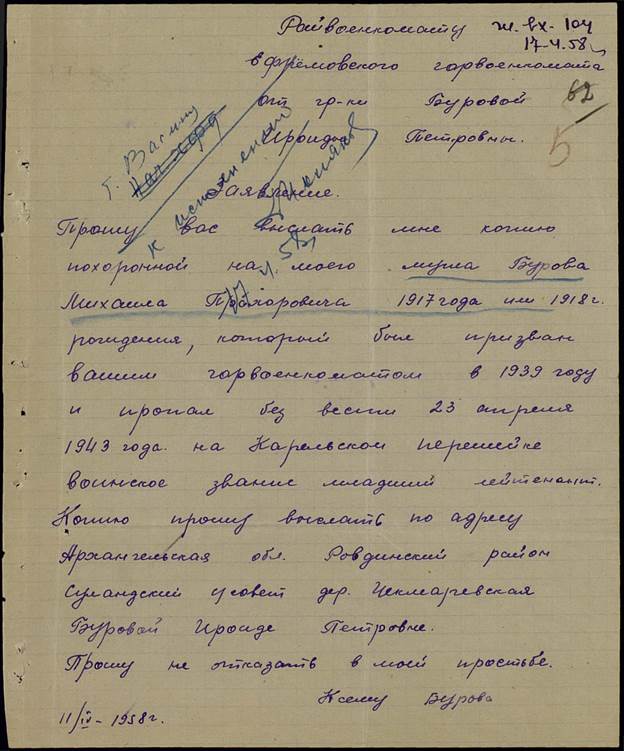 Райвоенкомату ж.вх-104
17-4.58
Ефремовского горвоенкомата
от гр-ки Буровой 62
Ироиды Петровны. 5
т. Вагину
к исполнению
Заявление.
Прошу вас выслать мне копию
похоронной на моего мужа Бурова
Михаила Прохоровича 1917 года или 1918 г.
рождения, который был призван
вашим горвоенкоматом в 1939 году
и пропал без вести 23 апреля
1943 года. на Карельском перешейке
воинское звание младший лейтенант.
Копию прошу выслать по адресу
Архангельская обл. Ровдинский район
Суландский с/совет дер.
Буровой Ироиде Петровне.
Прошу не отказать в моей простьбе.
К сему Бурова
11/IV-1958 г.